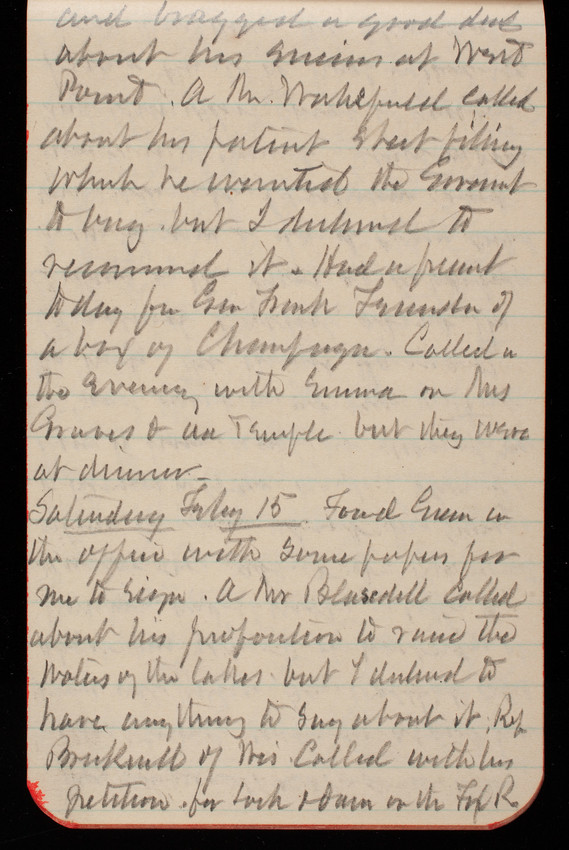 and bragged a good deal
about his success at West
Point. A Mr. Wakefield called
about his patent Sheet piling
which he wanted the Govmnt
to buy but I declined to
recommend it. Had a present
today from Gen Frank
a box of Champagne. Called in
the evening with Emma on Mrs
Graves & Temple but they were
at dinner.
Saturday Feby 15. Found Green in
the office with some papers for
me to sign. A Mr Blaisdell called
about his proposition to raise the
waters of the lakes but I declined to
have anything to say about it. Rep
of Wis Called with his
petition for Lock & Dam on the Fox R.